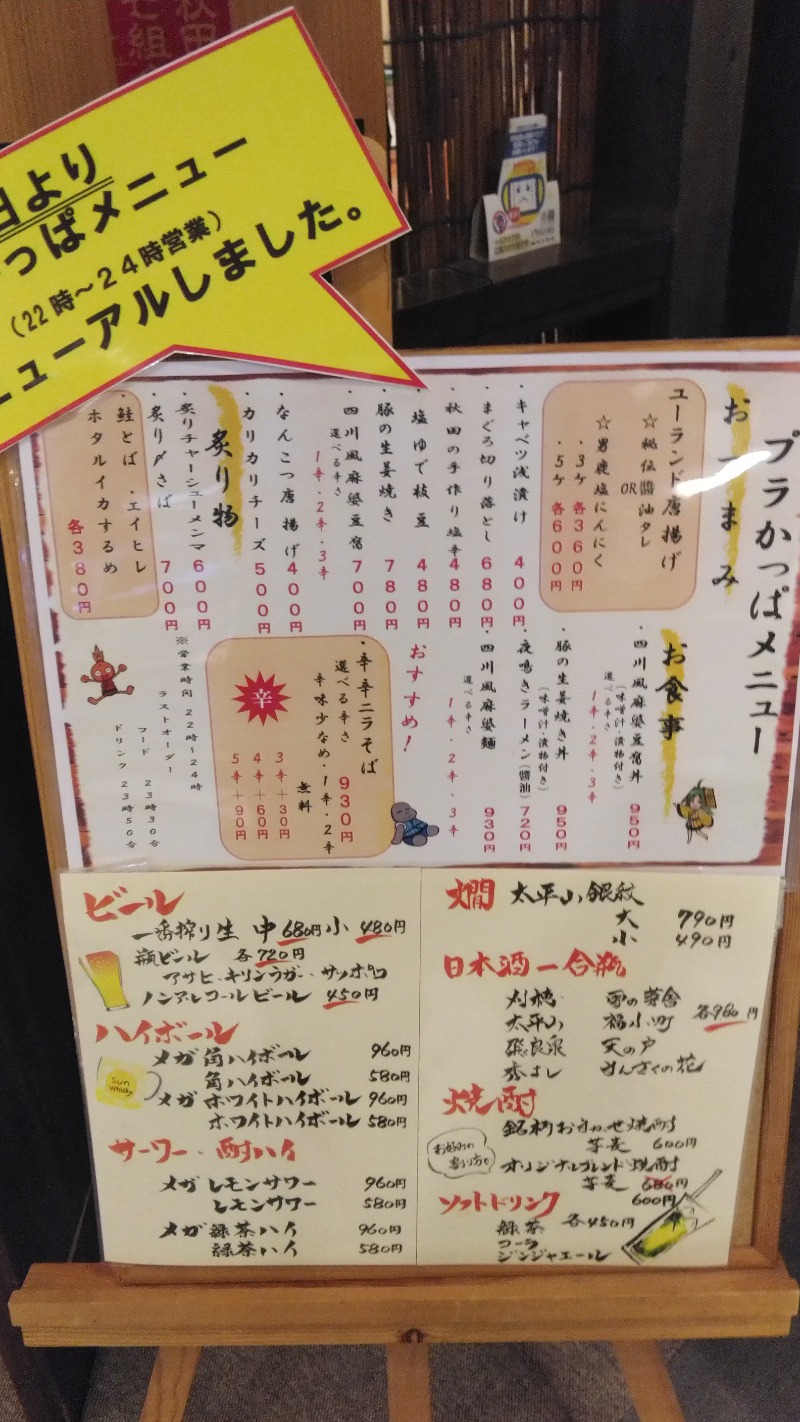 日より
っぱメニュー
（22時～24時営業）
ニューアルしました。
プラかっぱメニュー
おつまみ
ユーランド唐揚げ
☆秘伝醬油タレ
OR
☆男鹿塩にんにく
・3ケ 各360円
・5ケ 各600円
・キャベツ浅漬け 400円
・まぐろ切り落とし 680円
・秋田の手作り塩辛 480円
・塩ゆで枝豆 480円
・豚の生姜焼き 780円
・四川風麻婆豆腐 700円
選べる辛さ
1辛・2辛・3辛
・なんこつ唐揚げ 400円
・カリカリチーズ 500円
炙り物
・炙りチャーシューメンマ 600円
・炙り〆さば 700円
・鮭とば ・エイヒレ
・ホタルイカするめ
各380円
お食事
・四川風麻婆豆腐丼 950円
（味噌汁・漬物付き）
選べる辛さ
1辛・2辛・3辛
・豚の生姜焼き丼 950円
（味噌汁・漬物付き）
・夜鳴きラーメン（醬油） 720円
・四川風麻婆麺 930円
選べる辛さ
1辛・2辛・3辛
おすすめ！
・辛辛ニラそば 930円
選べる辛さ
辛味少なめ・1辛・2辛
無料
3辛＋30円
4辛＋60円
5辛＋90円
辛
※営業時間 22時～24時
ラストオーダー
フード 23時30分
ドリンク 23時50分
ビール
一番搾り生 中680円 小480円
瓶ビール 各720円
アサヒ・キリンラガー・サッポロ
ノンアルコールビール 450円
ハイボール
メガ角ハイボール 960円
角ハイボール 580円
メガホワイトハイボール 960円
ホワイトハイボール 580円
Sun
Whisky
サーワー・酎ハイ
メガレモンサワー 960円
レモンサワー 580円
メガ緑茶ハイ 960円
緑茶ハイ 580円
燗 太平山銀紋
大 790円
小 490円
日本酒一合瓶
刈穂 雪の茅舎
太平山 福小町 各980円
飛良泉 天の戸
秀よし まんさくの花
焼酎
銘柄おまかせ焼酎
芋麦 600円
お好みの
割り方で
オリジナルブレンド焼酎
芋麦 680円
600円
ソフトドリンク
緑茶 各450円
コーラ
ジンジャエール